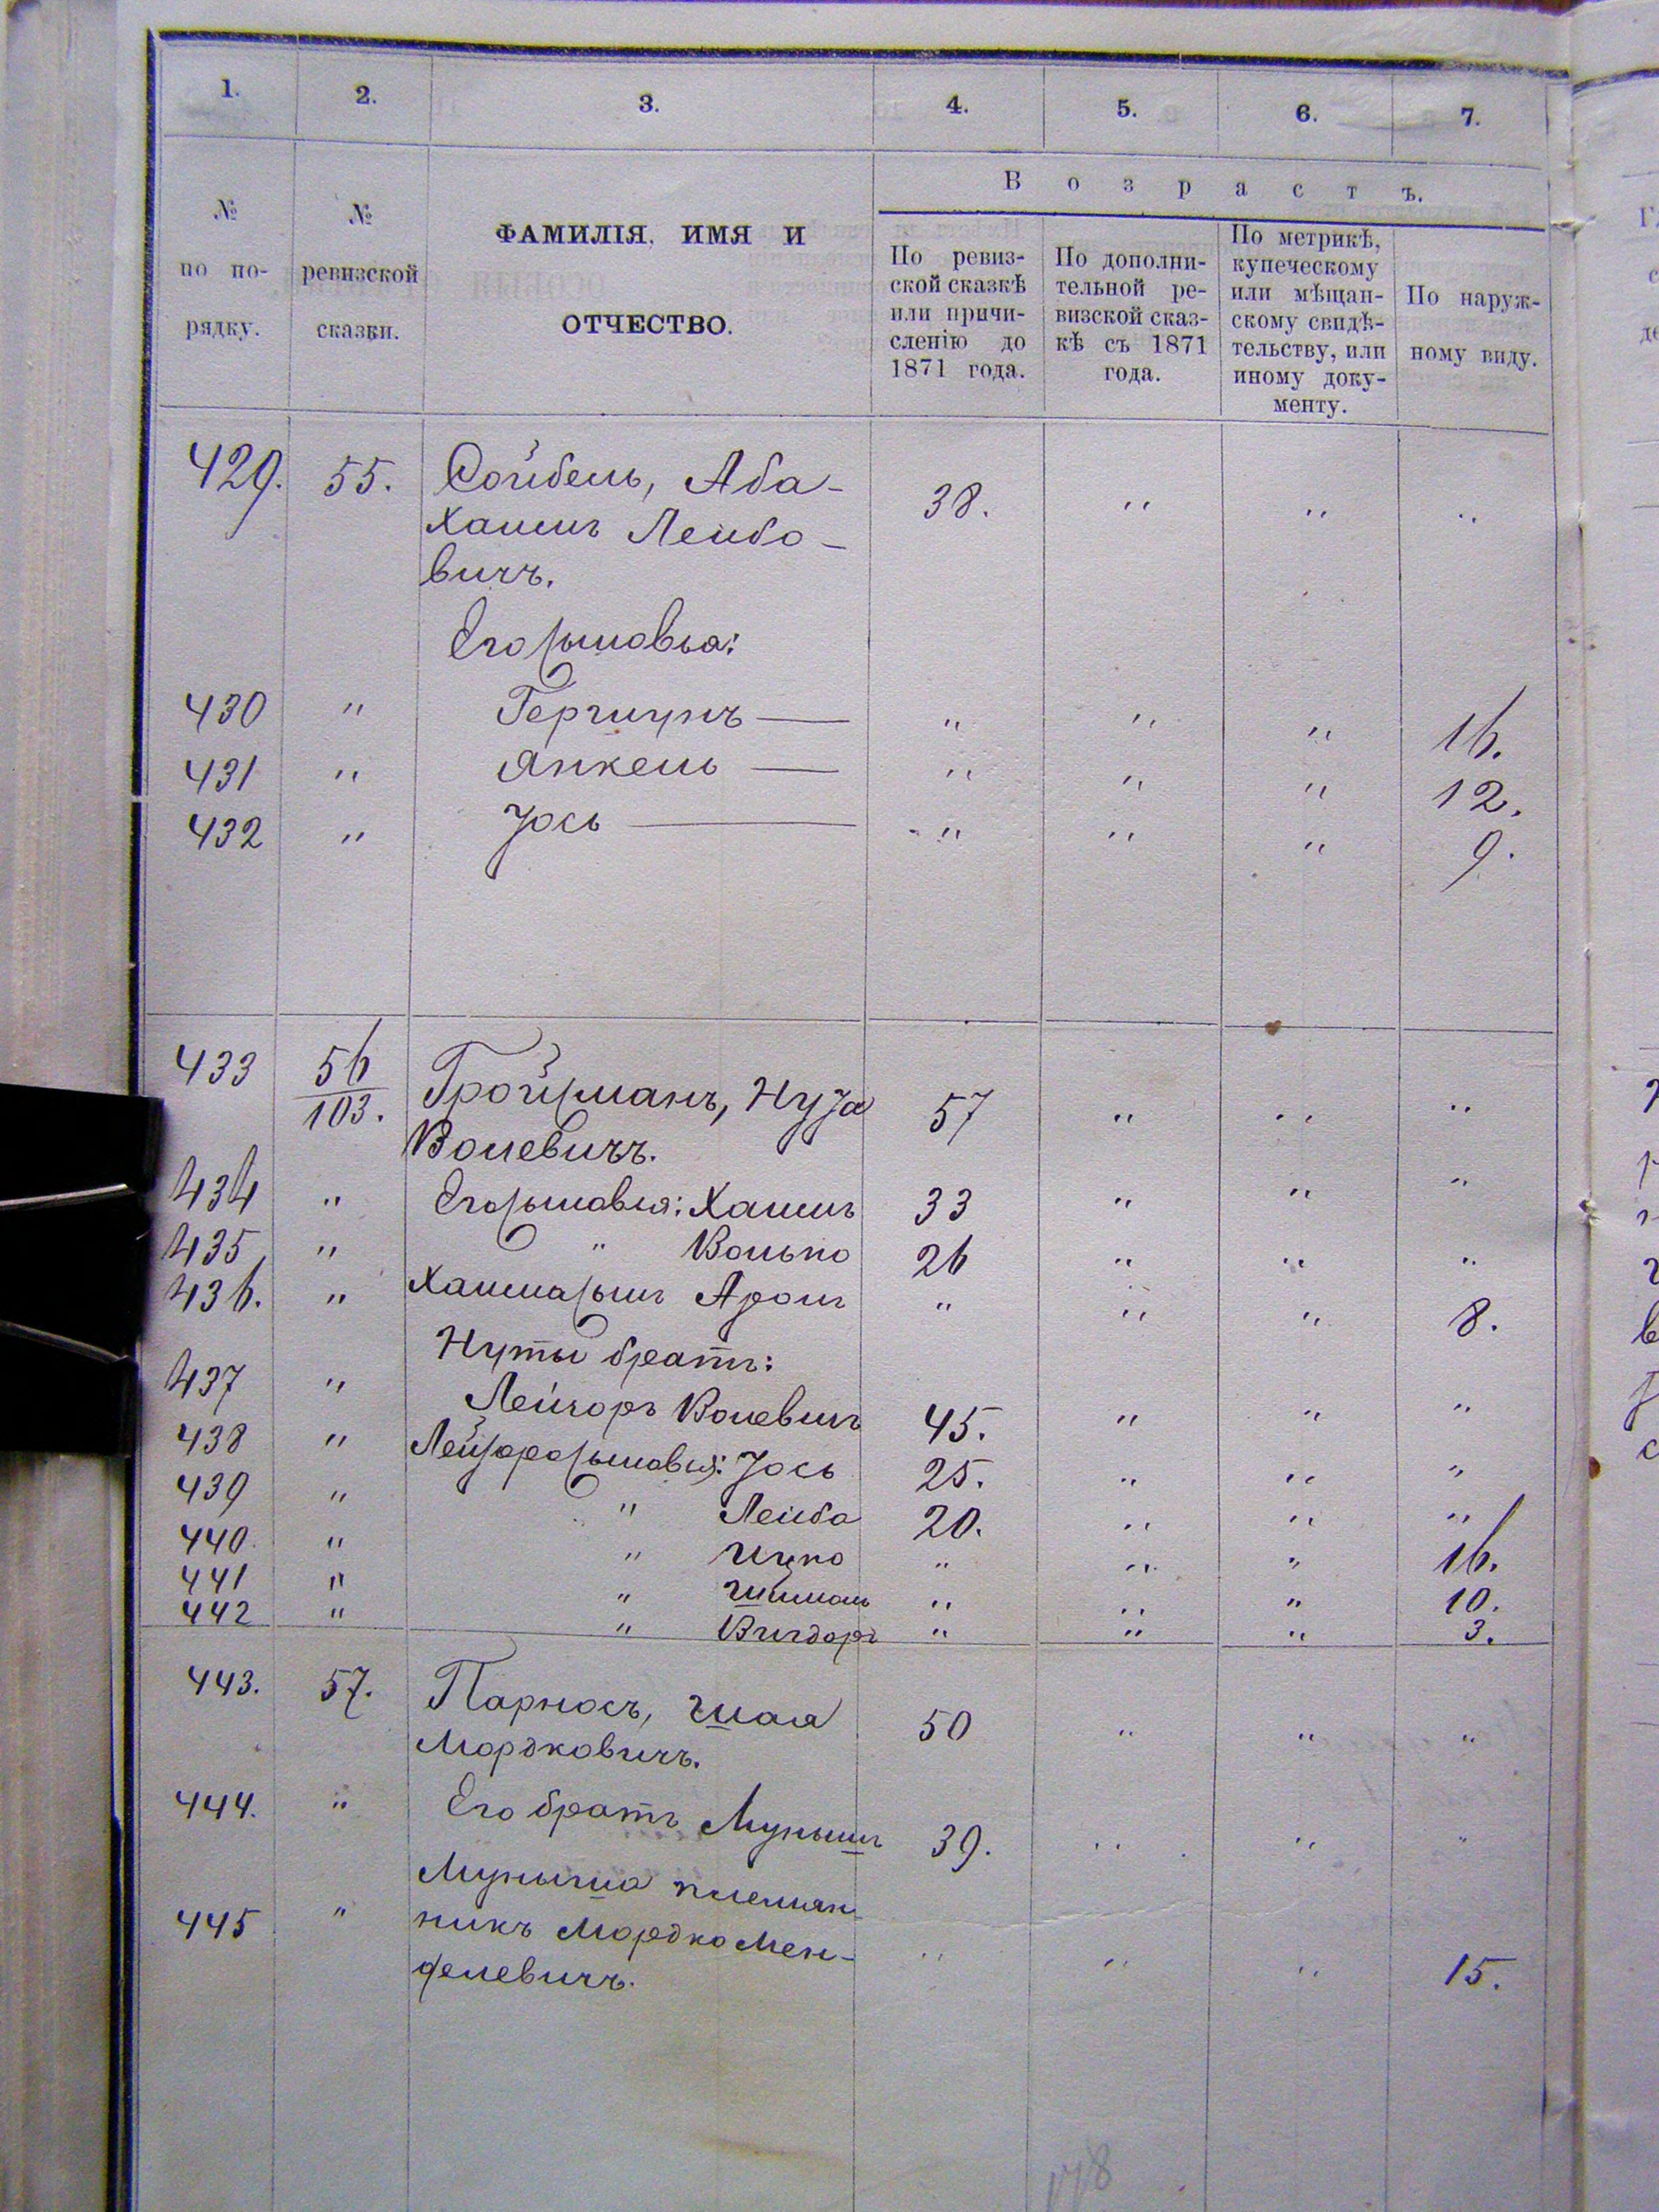 1. 2. 3. 4. 5. 6. 7.
№ по по-рядку.
№ ревизской сказки.
ФАМИЛІЯ, ИМЯ И ОТЧЕСТВО.
Возрастъ.
По ревиз-ской сказкѣ или причи-сленію до 1871 года.
По дополни-тельной ре-визской сказ-кѣ съ 1871 года.
По метрикѣ, купеческому или мѣщан-скому свидѣ-тельству, или иному доку-менту.
По наруж-ному виду.
429. 55. Сойбель, Аба- 38. " " "
Хаимъ Лейбо-
вичъ.
Его сыновья:
430 " Гершунъ — " " " 16.
431 " Янкель — " " " 12.
432 " Іось — " " " 9.
433 56/103. Гройсманъ, Нута 57 " " "
Волевичъ.
434 " Его сыновья: Хаимъ 33 " " "
435 " " Волько 26 " " "
436. " Хаима сынъ Аронъ " " " 8.
Нуты братъ:
437 " Лейзоръ Волевичъ 45. " " "
438 " Лейзора сыновья: Іось 25. " " "
439 " " Лейба 20. " " "
440. " " Ицко " " " 16.
441 " " Шимон " " " 10.
442 " " Вигдоръ " " " 3.
443. 57. Парносъ, Шая 50 " " "
Мордковичъ.
444. " Его братъ Мунышъ 39. " " "
Муныша племян-
445 " никъ Мордко Мен- " " " 15.
делевичъ.
178